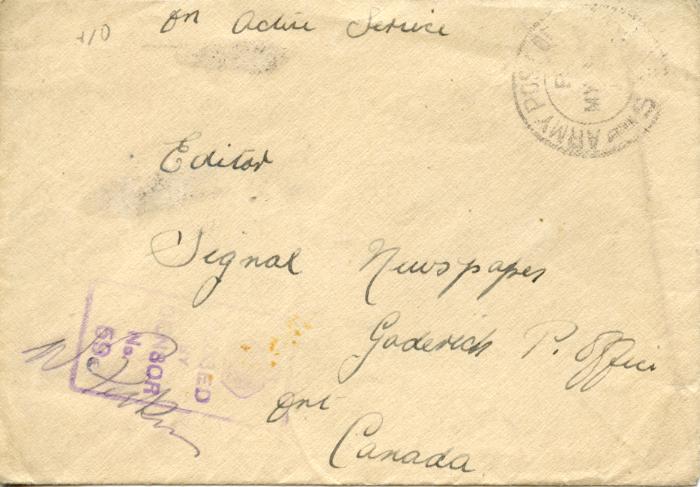 on Active Service
ARMY POST
Editor
Signal Newspaper
Goderich P. Office
Ont
Canada
CENSOR
No.